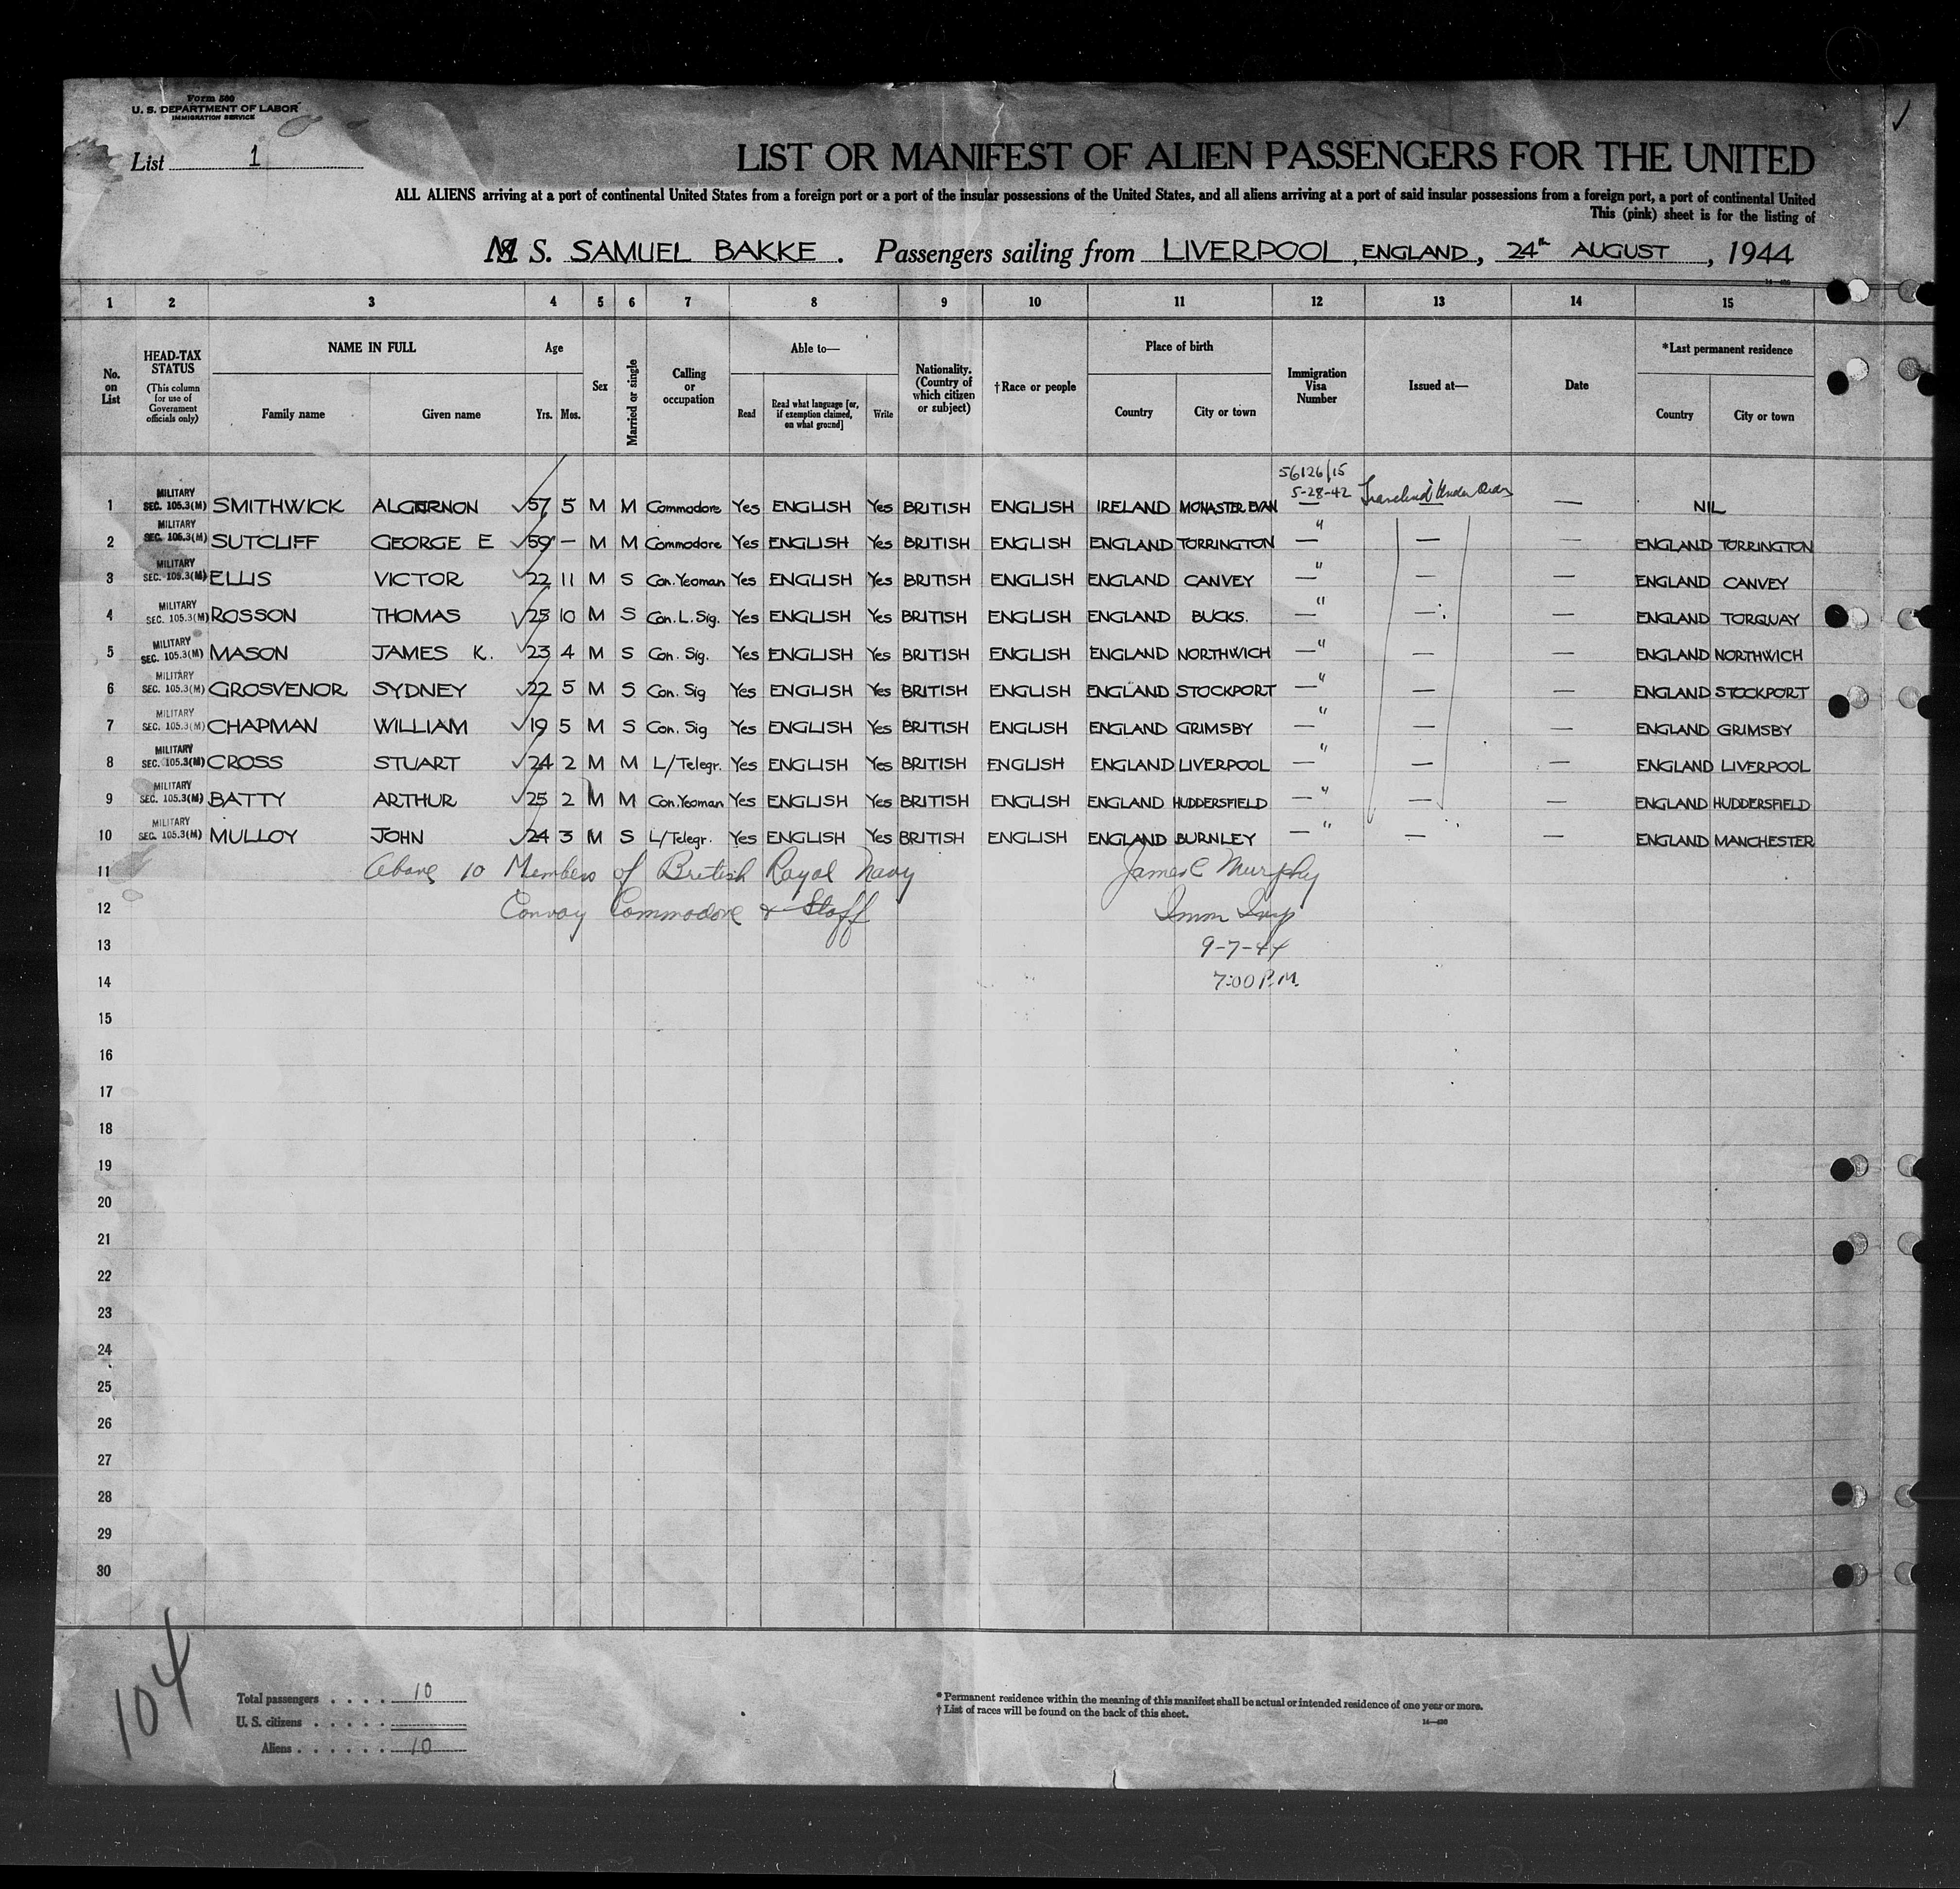 Form 500
U. S. DEPARTMENT OF LABOR
IMMIGRATION SERVICE
List 1
LIST OR MANIFEST OF ALIEN PASSENGERS FOR THE UNITED
ALL ALIENS arriving at a port of continental United States from a foreign port or a port of the insular possessions of the United States, and all aliens arriving at a port of said insular possessions from a foreign port, a port of continental United
This (pink) sheet is for the listing of
M S. SAMUEL BAKKE. Passengers sailing from LIVERPOOL, ENGLAND, 24th AUGUST, 1944
1 2 3 4 5 6 7 8 9 10 11 12 13 14 15
No. on List
HEAD-TAX STATUS (This column for use of Government officials only)
NAME IN FULL Family name Given name
Age Yrs. Mos.
Sex
Married or single
Calling or occupation
Able to— Read Read what language [or, if exemption claimed, on what ground] Write
Nationality. (Country of which citizen or subject)
†Race or people
Place of birth Country City or town
Immigration Visa Number
Issued at—
Date
*Last permanent residence Country City or town
56126/15
5-28-42
1 MILITARY SEC. 105.3(M) SMITHWICK ALGERNON 57 5 M M Commodore Yes ENGLISH Yes BRITISH ENGLISH IRELAND MONASTER EVAN — — — NIL
2 MILITARY SEC. 105.3(M) SUTCLIFF GEORGE E 59 — M M Commodore Yes ENGLISH Yes BRITISH ENGLISH ENGLAND TORRINGTON — " — — ENGLAND TORRINGTON
3 MILITARY SEC. 105.3(M) ELLIS VICTOR 22 11 M S Con. Yeoman Yes ENGLISH Yes BRITISH ENGLISH ENGLAND CANVEY — " — — ENGLAND CANVEY
4 MILITARY SEC. 105.3(M) ROSSON THOMAS 25 10 M S Con. L. Sig. Yes ENGLISH Yes BRITISH ENGLISH ENGLAND BUCKS. — " — — ENGLAND TORQUAY
5 MILITARY SEC. 105.3(M) MASON JAMES K. 23 4 M S Con. Sig. Yes ENGLISH Yes BRITISH ENGLISH ENGLAND NORTHWICH — " — — ENGLAND NORTHWICH
6 MILITARY SEC. 105.3(M) GROSVENOR SYDNEY 22 5 M S Con. Sig Yes ENGLISH Yes BRITISH ENGLISH ENGLAND STOCKPORT — " — — ENGLAND STOCKPORT
7 MILITARY SEC. 105.3(M) CHAPMAN WILLIAM 19 5 M S Con. Sig Yes ENGLISH Yes BRITISH ENGLISH ENGLAND GRIMSBY — " — — ENGLAND GRIMSBY
8 MILITARY SEC. 105.3(M) CROSS STUART 24 2 M M L/Telegr. Yes ENGLISH Yes BRITISH ENGLISH ENGLAND LIVERPOOL — " — — ENGLAND LIVERPOOL
9 MILITARY SEC. 105.3(M) BATTY ARTHUR 25 2 M M Con. Yeoman Yes ENGLISH Yes BRITISH ENGLISH ENGLAND HUDDERSFIELD — " — — ENGLAND HUDDERSFIELD
10 MILITARY SEC. 105.3(M) MULLOY JOHN 24 3 M S L/Telegr. Yes ENGLISH Yes BRITISH ENGLISH ENGLAND BURNLEY — " — — ENGLAND MANCHESTER
11 Above 10 Members of British Royal Navy James C Murphy
12 Convoy Commodore & Staff Imm Insp
13 9-7-44
14 7:00 P.M.
15
16
17
18
19
20
21
22
23
24
25
26
27
28
29
30
104
Total passengers . . . . 10
U. S. citizens . . . . .
Aliens . . . . . . 10
* Permanent residence within the meaning of this manifest shall be actual or intended residence of one year or more.
† List of races will be found on the back of this sheet.